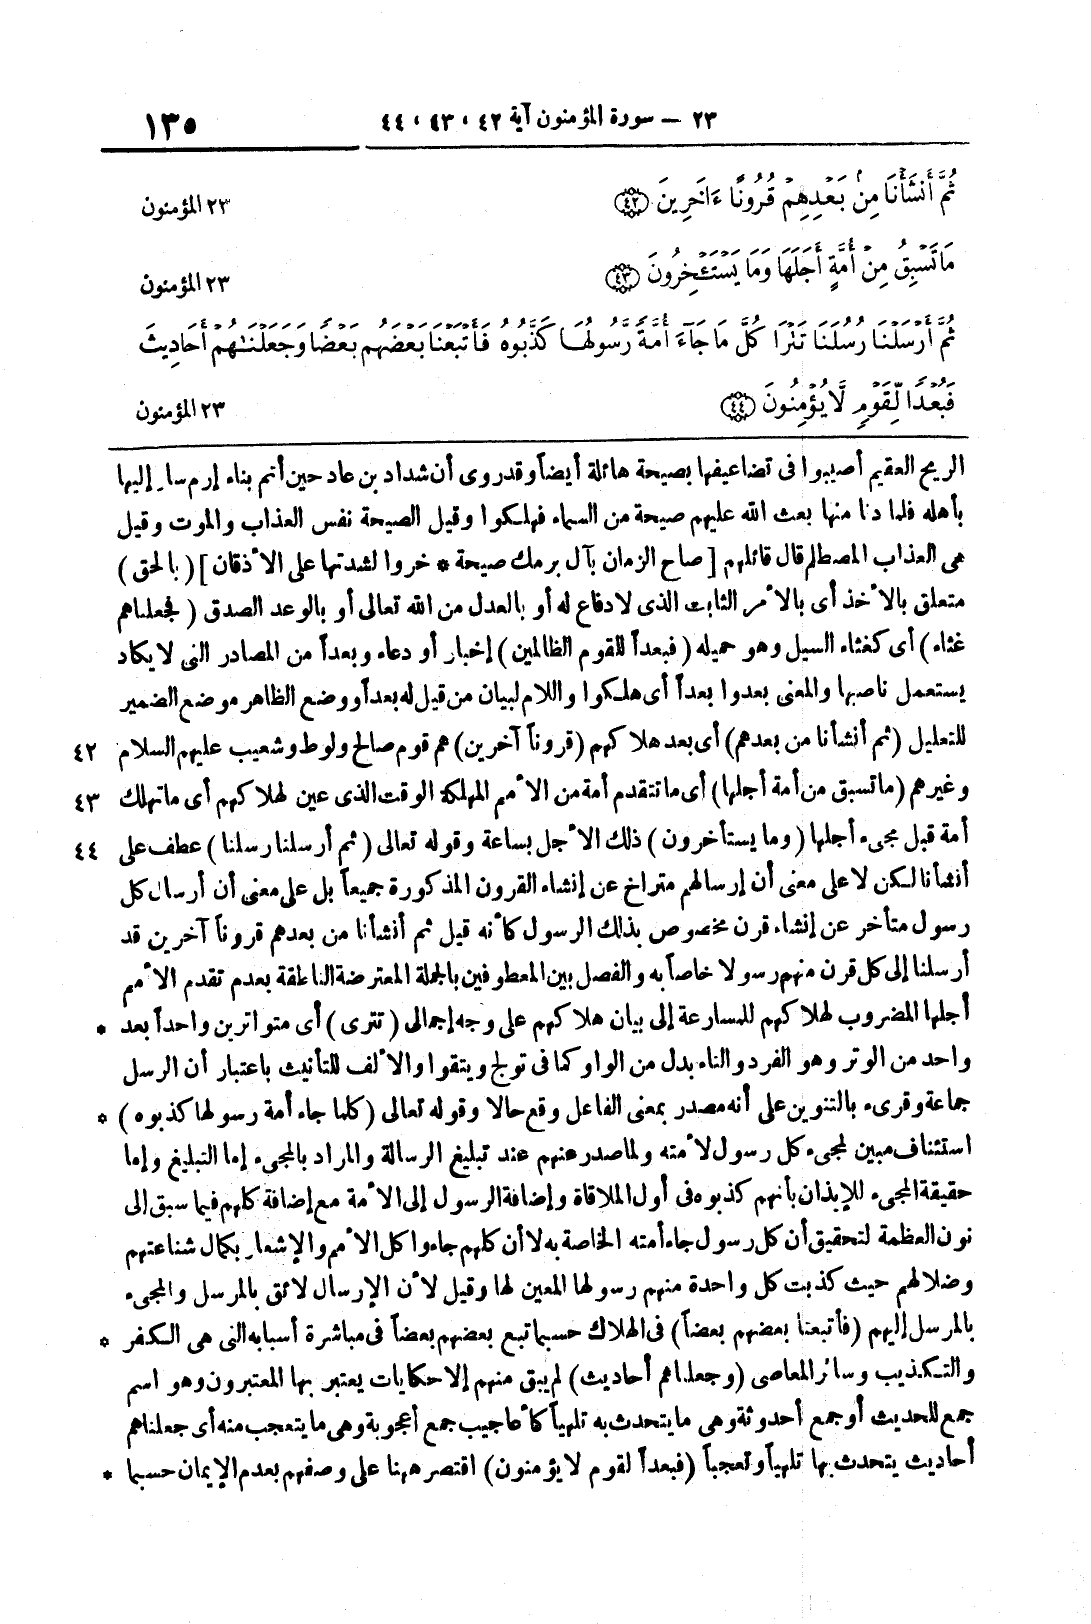 ٢٣ – سورة المؤمنون آية ٤٢ ، ٤٣ ، ٤٤
١٣٥
ثُمَّ أَنشَأْنَا مِنۢ بَعْدِهِمْ قُرُونًا ءَاخَرِينَ ﴿٤٢﴾ ٢٣ المؤمنون
مَا تَسْبِقُ مِنْ أُمَّةٍ أَجَلَهَا وَمَا يَسْتَـْٔخِرُونَ ﴿٤٣﴾ ٢٣ المؤمنون
ثُمَّ أَرْسَلْنَا رُسُلَنَا تَتْرَا كُلَّ مَا جَآءَ أُمَّةً رَّسُولُهَا كَذَّبُوهُ فَأَتْبَعْنَا بَعْضَهُم بَعْضًا وَجَعَلْنَـٰهُمْ أَحَادِيثَ
فَبُعْدًا لِّقَوْمٍ لَّا يُؤْمِنُونَ ﴿٤٤﴾ ٢٣ المؤمنون
الريح العقيم أصيبوا فى تضاعيفها بصيحة هائلة أيضاً وقد روى أن شداد بن عاد حين أتم بناء إرم سار إليها
بأهله فلما دنا منها بعث الله عليهم صيحة من السماء فهلكوا وقيل الصيحة نفس العذاب والموت وقيل
هى العذاب المصطلم قال قائلهم [ صاح الزمان بآل برمك صيحة * خروا لشدتها على الأذقان ] ( بالحق )
متعلق بالأخذ أى بالأمر الثابت الذى لا دفاع له أو بالعدل من الله تعالى أو بالوعد الصدق ( فجعلناهم
غثاء ) أى كغثاء السيل وهو حميله ( فبعداً للقوم الظالمين ) إخبار أو دعاء وبعداً من المصادر التى لا يكاد
يستعمل ناصبها والمعنى بعدوا بعداً أى هلكوا واللام لبيان من قيل له بعداً ووضع الظاهر موضع الضمير
للتعليل (ثم أنشأنا من بعدهم) أى بعد هلاكهم (قروناً آخرين) هم قوم صالح ولوط وشعيب عليهم السلام ٤٢
وغيرهم (ما تسبق من أمة أجلها) أى ما تتقدم أمة من الأمم المهلكة الوقت الذى عين لهلاكهم أى ما تهلك ٤٣
أمة قبل مجىء أجلها ( وما يستأخرون ) ذلك الأجل بساعة وقوله تعالى ( ثم أرسلنا رسلنا ) عطف على ٤٤
أنشأنا لكن لا على معنى أن إرسالهم متراخ عن إنشاء القرون المذكورة جميعاً بل على معنى أن أرسال كل
رسول متأخر عن إنشاء قرن مخصوص بذلك الرسول كأنه قيل ثم أنشأنا من بعدهم قروناً آخرين قد
أرسلنا إلى كل قرن منهم رسولا خاصاً به والفصل بين المعطوفين بالجملة المعترضة الناطقة بعدم تقدم الأمم
أجلها المضروب لهلاكهم للمسارعة إلى بيان هلاكهم على وجه إجمالى ( تترى ) أى متواترين واحداً بعد *
واحد من الوتر وهو الفرد والتاء بدل من الواو كما فى تولج ويتقوا والألف للتأنيث باعتبار أن الرسل
جماعة وقرىء بالتنوين على أنه مصدر بمعنى الفاعل وقع حالا وقوله تعالى (كلما جاء أمة رسولها كذبوه ) *
استئناف مبين لمجىء كل رسول لأمته ولما صدر عنهم عند تبليغ الرسالة والمراد بالمجىء إما التبليغ وإما
حقيقة المجىء للإيذان بأنهم كذبوه فى أول الملاقاة وإضافة الرسول إلى الأمة مع إضافة كلهم فيما سبق إلى
نون العظمة لتحقيق أن كل رسول جاء أمته الخاصة به لا أن كلهم جاءوا كل الأمم والإشعار بكمال شناعتهم
وضلالهم حيث كذبت كل واحدة منهم رسولها المعين لها وقيل لأن الإرسال لائق بالمرسل والمجىء
بالمرسل إليهم (فأتبعنا بعضهم بعضاً) فى الهلاك حسبما تبع بعضهم بعضاً فى مباشرة أسبابه التى هى الكفر *
والتكذيب وسائر المعاصى (وجعلناهم أحاديث) لم يبق منهم إلا حكايات يعتبر بها المعتبرون وهو اسم
جمع للحديث أو جمع أحدوثة وهى ما يتحدث به تلهياً كأعاجيب جمع أعجوبة وهى ما يتعجب منه أى جعلناهم
أحاديث يتحدث بها تلهياً وتعجباً (فبعداً لقوم لا يؤمنون) اقتصر ههنا على وصفهم بعدم الإيمان حسبما *